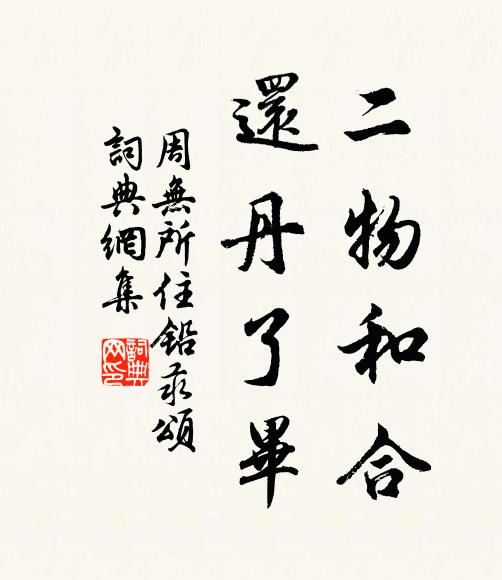 二物和合
還丹了畢
周無所住鉛汞頌
詞典網集
詞典網印